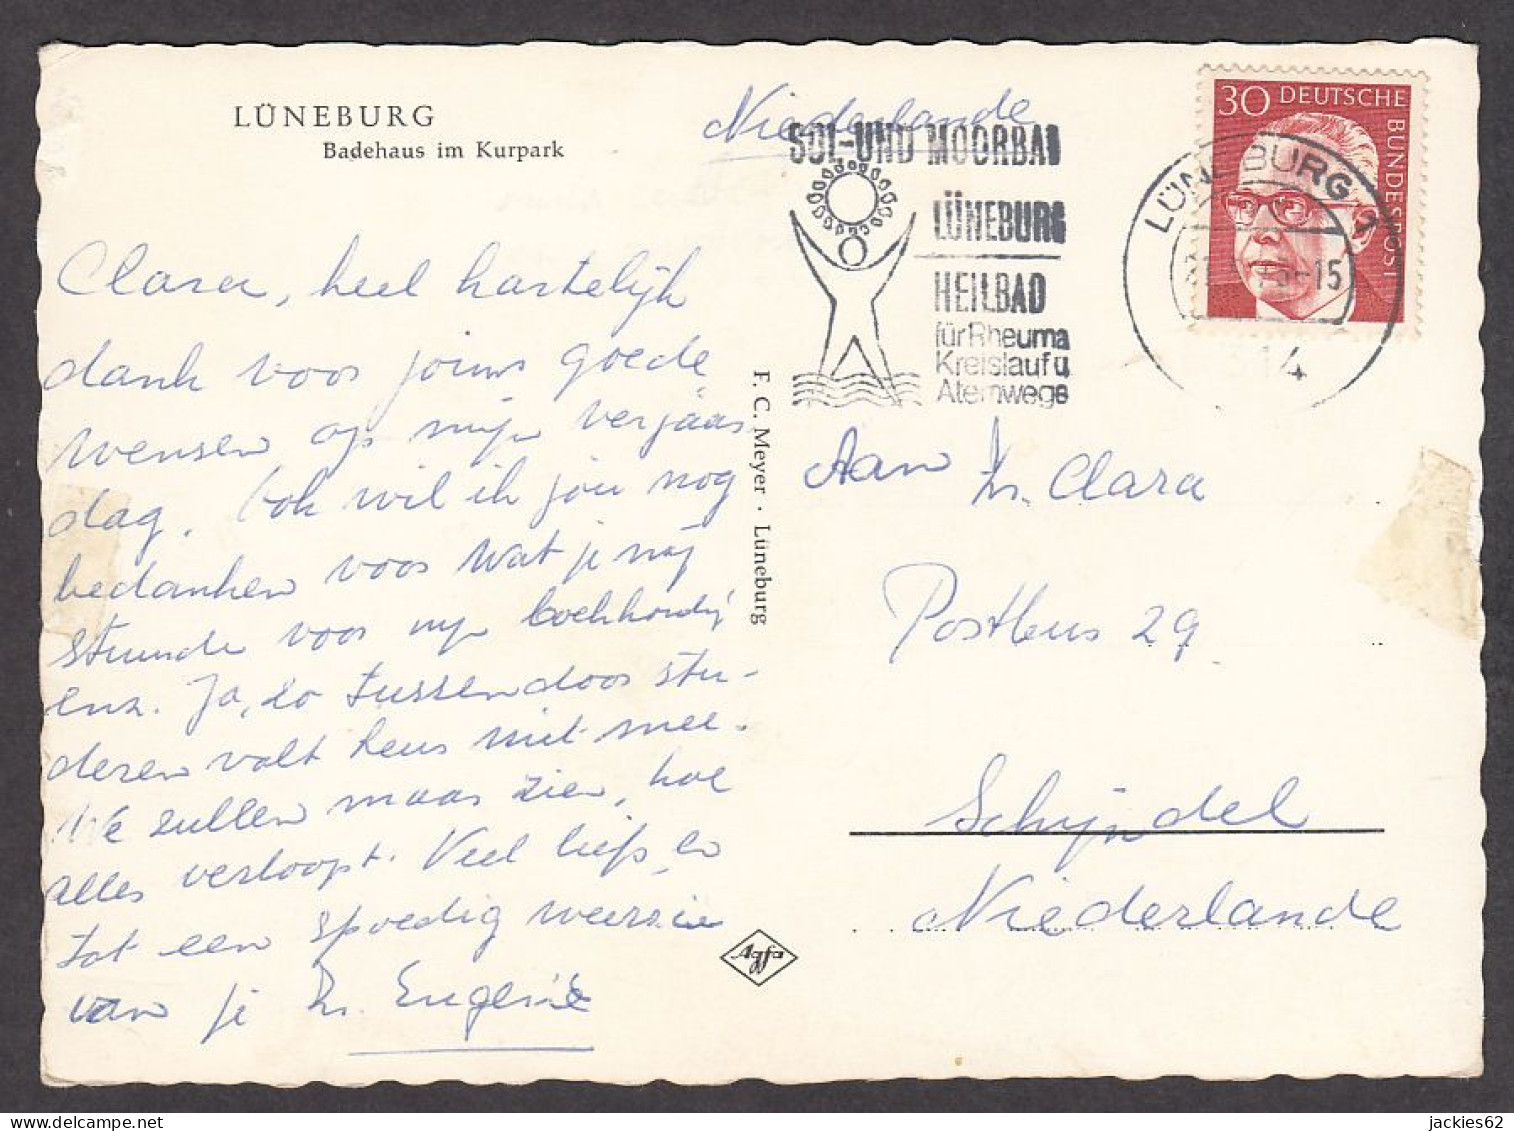 LÜNEBURG
Badehaus im Kurpark
Clara, heel hartelijk
dank voor jouw goede
wensen op mijn verjaar
dag. Ook wil ik jou nog
bedanken voor wat je mij
stuurde voor mijn boekhoudij
enz. Ja, zo tussendoor stu-
deren valt heus niet mee.
We zullen maar zien, hoe
alles verloopt. Veel liefs, en
tot een spoedig weerzien
van je Zr. Eugenie
F. C. Meyer · Lüneburg
Agfa
Niederlande
SOL-UND MOORBAD
LÜNEBURG
HEILBAD
für Rheuma
Kreislauf u
Atemwege
30 DEUTSCHE
BUNDESPOST
LÜNEBURG 1
-15
314
Aan Zr. Clara
Posthus 29
Schijndel
Niederlande
jackies62